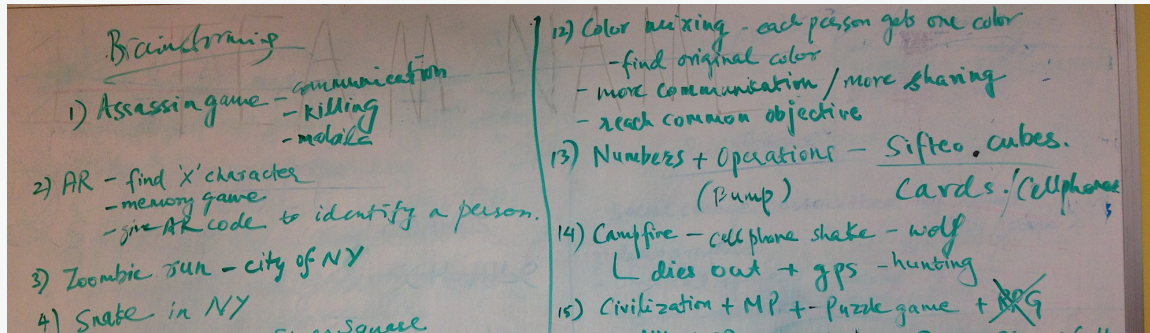 Brainstorming
1) Assassin game - communication
- killing
- mobile
2) AR - find 'x' character
- memory game
- give AR code to identify a person.
3) Zoombie run - city of NY
4) Snake in NY
Square
12) Color mixing - each person gets one color
- find original color
- more communication / more sharing
- reach common objective
13) Numbers + Operations - Sifteo cubes.
(Bump) Cards / Cellphones
14) Campfire - cellphone shake - wolf
dies out + gps - hunting
15) Civilization + MP + - Puzzle game + RPG